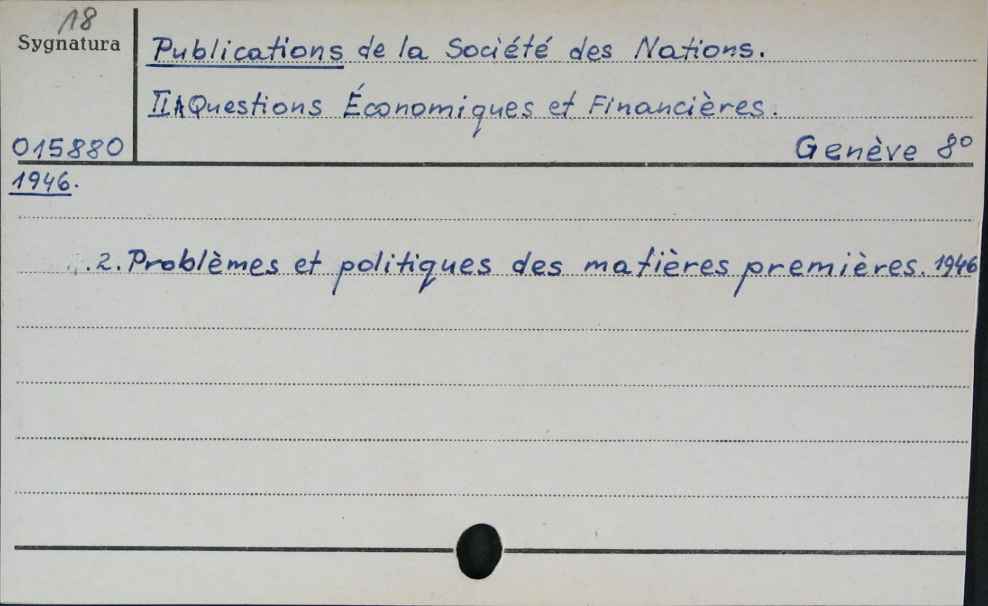 18
Sygnatura
Publications de la Société des Nations.
II A Questions Économiques et Financières.
015880
Genève 8°
1946.
2. Problèmes et politiques des matières premières. 1946